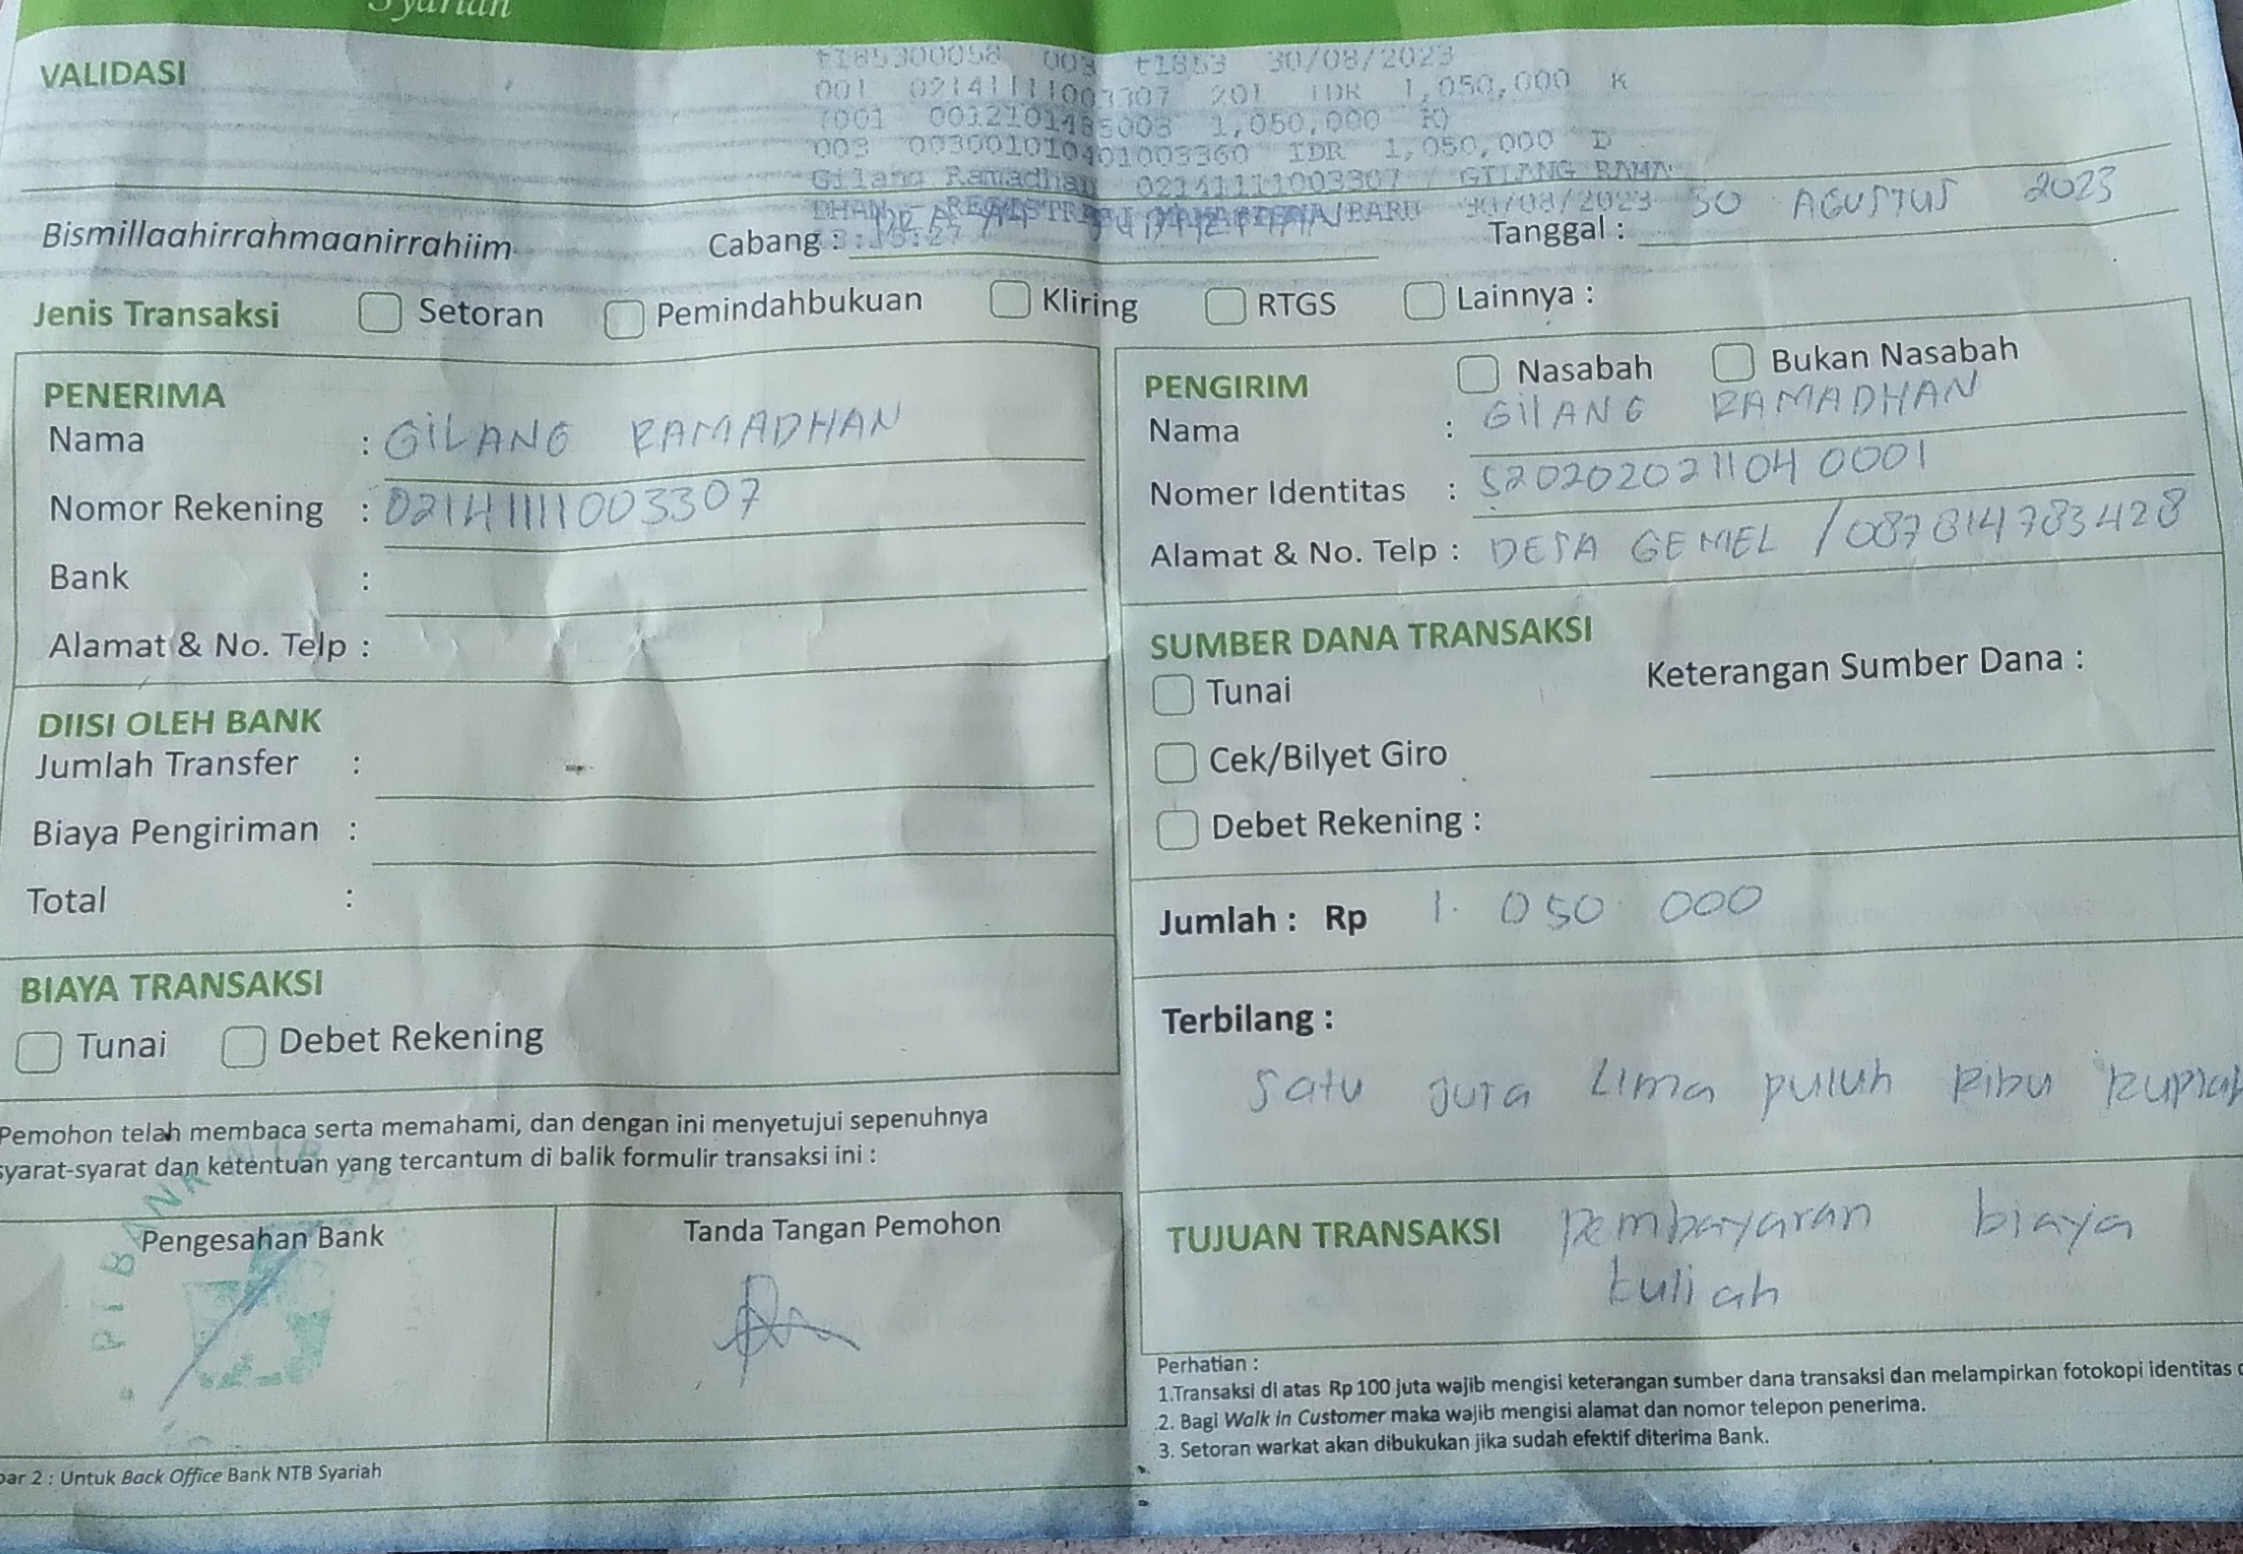 Syariah
VALIDASI
003 t1853 30/08/2023
001 02141111003307 201 IDR 1,050,000 K
(001 0012101485003 1,050,000 K)
003 003001010401003360 IDR 1,050,000 D
Gilang Ramadhan 02141111003307 / GILANG RAMA
DHAN - 30/08/2023
Bismillaahirrahmaanirrahiim
Cabang :
Tanggal : 30 AGUSTUS 2023
Jenis Transaksi Setoran Pemindahbukuan Kliring RTGS Lainnya :
PENERIMA
Nama : GILANG RAMADHAN
Nomor Rekening : 02141111003307
Bank :
Alamat & No. Telp :
DIISI OLEH BANK
Jumlah Transfer :
Biaya Pengiriman :
Total :
BIAYA TRANSAKSI
Tunai Debet Rekening
Pemohon telah membaca serta memahami, dan dengan ini menyetujui sepenuhnya
syarat-syarat dan ketentuan yang tercantum di balik formulir transaksi ini :
Pengesahan Bank
Tanda Tangan Pemohon
bar 2 : Untuk Back Office Bank NTB Syariah
PENGIRIM Nasabah Bukan Nasabah
Nama : GILANG RAMADHAN
Nomer Identitas : 5202020211040001
Alamat & No. Telp : DESA GEMEL / 087814783428
SUMBER DANA TRANSAKSI
Tunai Keterangan Sumber Dana :
Cek/Bilyet Giro
Debet Rekening :
Jumlah : Rp 1. 050 000
Terbilang :
Satu Juta Lima puluh Ribu Rupiah
TUJUAN TRANSAKSI Pembayaran biaya
kuliah
Perhatian :
1.Transaksi di atas Rp 100 juta wajib mengisi keterangan sumber dana transaksi dan melampirkan fotokopi identitas
2. Bagi Walk in Customer maka wajib mengisi alamat dan nomor telepon penerima.
3. Setoran warkat akan dibukukan jika sudah efektif diterima Bank.